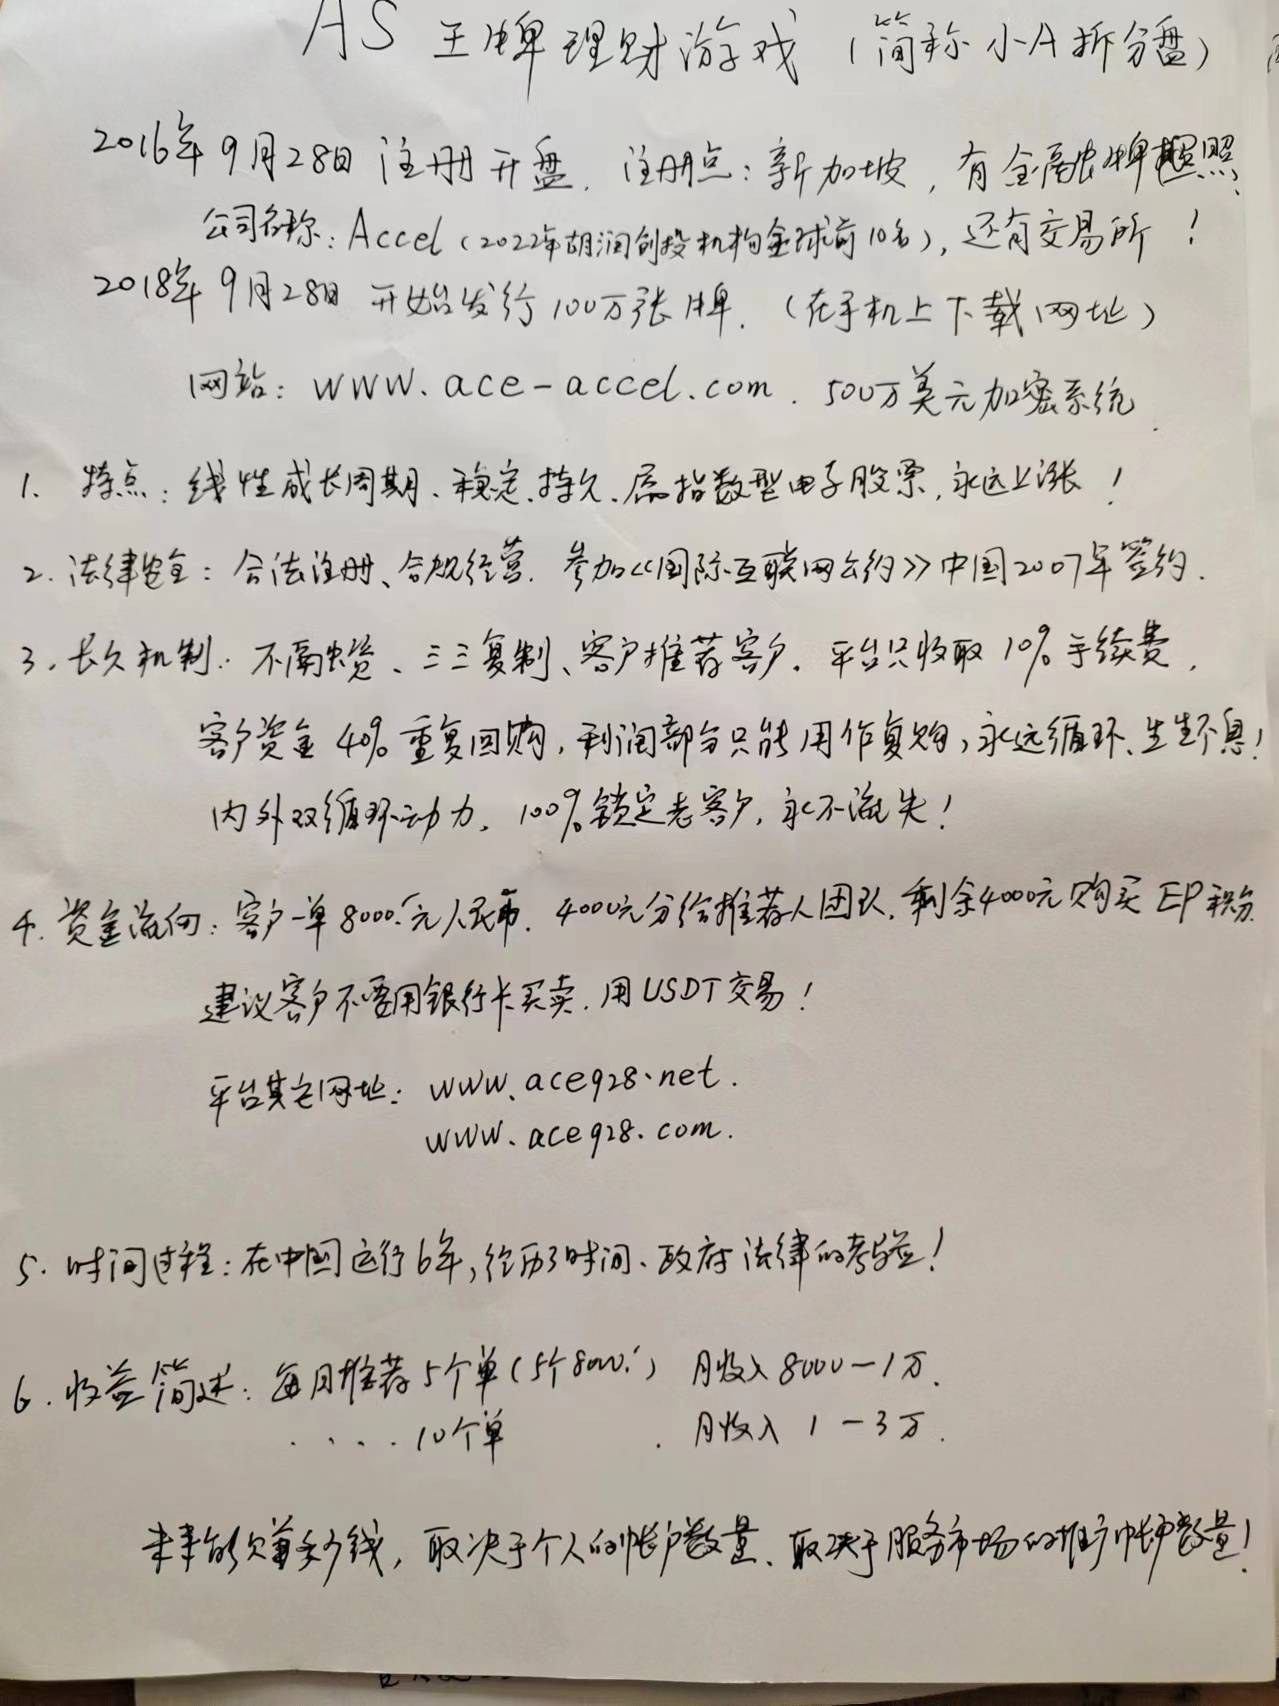 AS 王牌理财游戏（简称小A拆分盘）
2016年9月28日注册开盘. 注册点：新加坡，有金融牌照、
公司名称：Accel（2022年胡润创投机构全球前10名），还有交易所！
2018年9月28日开始发行100万张牌.（在手机上下载网址）
网站：www.ace-accel.com. 500万美元加密系统.
1. 特点：线性成长周期、稳定、持久、属指数型电子股票，永远上涨！
2. 法律安全：合法注册、合规经营. 参加《国际互联网公约》中国2007年签约.
3. 长久机制：不南资、三三复制、客户推荐客户. 平台只收取10%手续费，
客户资金40%重复回购，利润部分只能用作复购，永远循环、生生不息！
内外双循环动力. 100%锁定老客户，永不流失！
4. 资金流向：客户一单8000元人民币. 4000元分给推荐人团队. 剩余4000元购买EP积分.
建议客户不要用银行卡买卖. 用USDT交易！
平台其它网址：www.ace928.net.
www.ace928.com.
5. 时间过程：在中国运行6年，经历了时间、政府法律的考验！
6. 收益简述：每月推荐5个单（5个8000）月收入8000－1万.
. . . . 10个单 . 月收入 1－3万.
未来能赚多少钱，取决于个人的帐户数量、取决于服务市场的推广帐户数量！